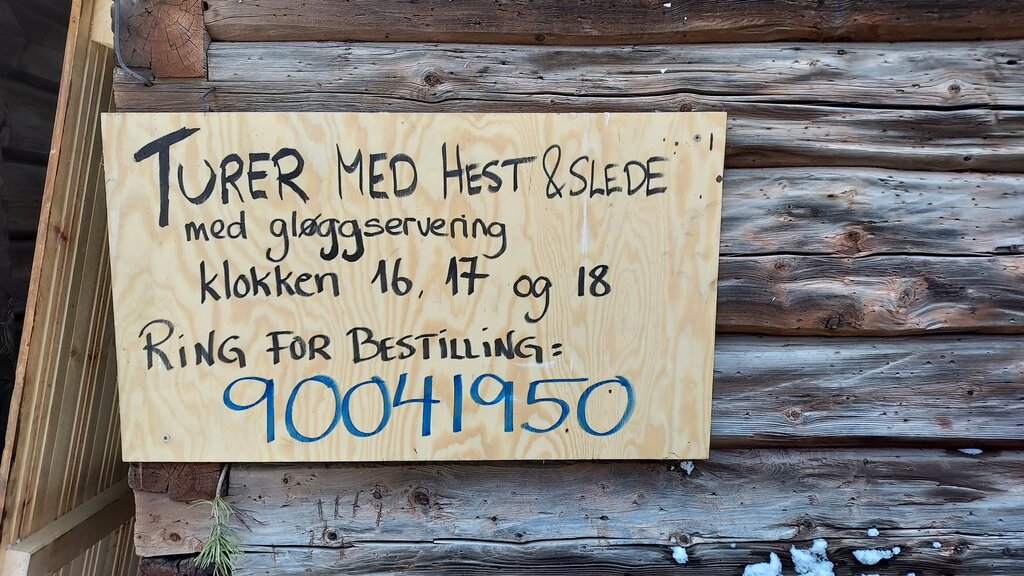 TURER MED HEST & SLEDE
med gløggservering
klokken 16, 17 og 18
RING FOR BESTILLING:
90041950